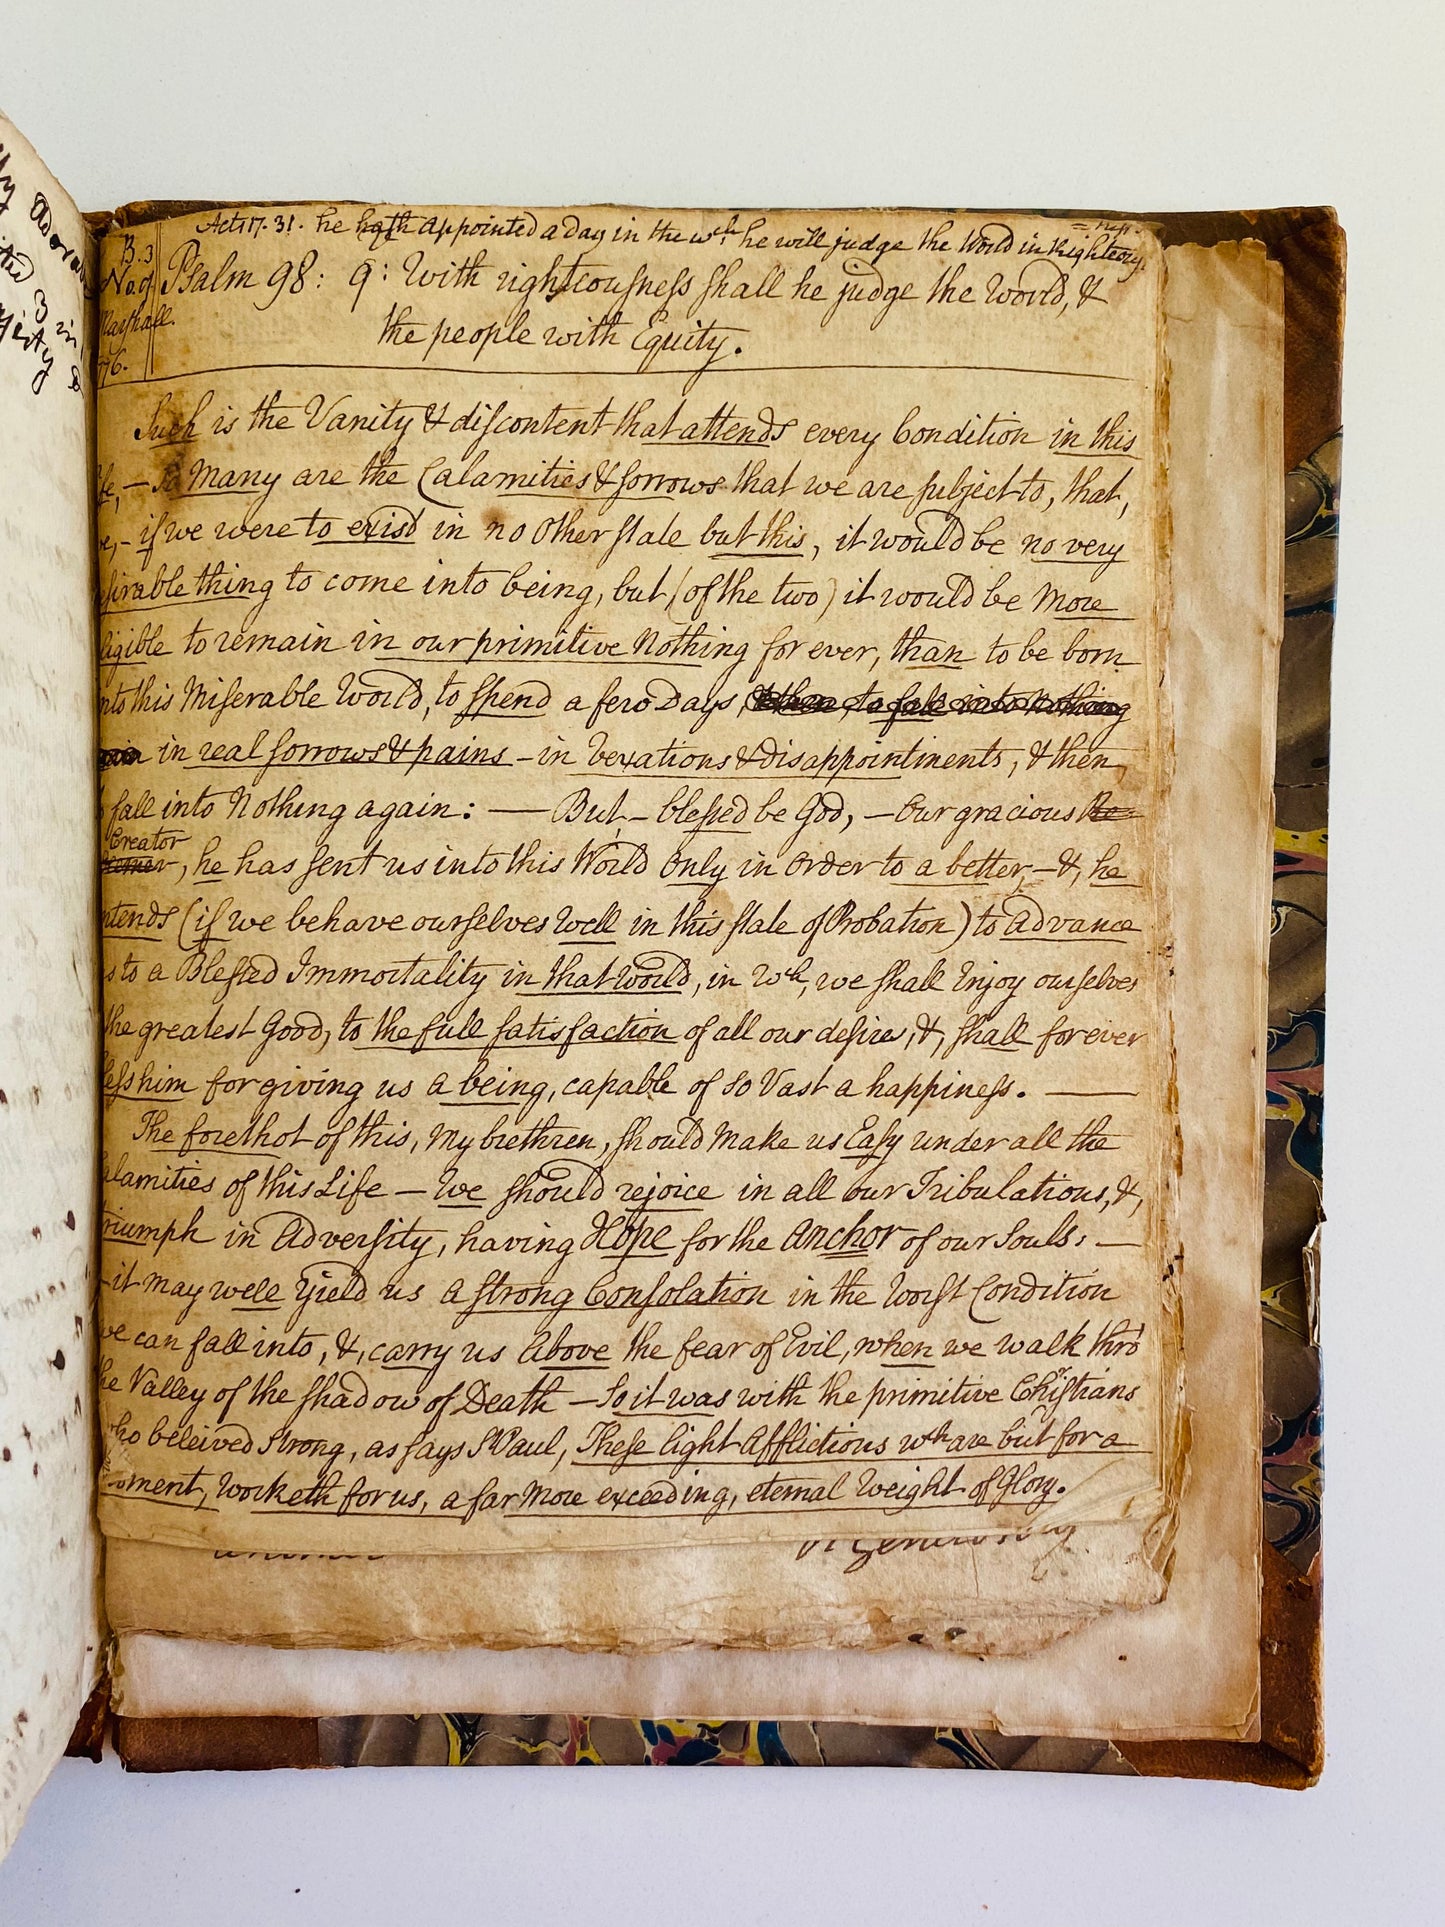 Acts 17. 31. he hath appointed a Day in the wch he will judge the World in Righteous
= ness.
B. 3
No. 9
Marshall.
776.
Psalm 98: 9: With righteousness shall he judge the World, &
the people with Equity.
Such is the Vanity & discontent that attends every Condition in this
fe, — So Many are the Calamities & sorrows that we are subject to, that,
e, - if we were to exist in no Other state but this, it would be no very
esirable thing to come into being, but (of the two) it would be More
ligible to remain in our primitive Nothing for ever, than to be born
nto this Miserable World, to spend a few Days, & then, to fall into Nothing
again in real sorrows & pains - in Vexations & disappointments, & then,
fall into Nothing again: — But, - blessed be God, - Our gracious Re=
Creator
deemer, he has sent us into this World Only in Order to a better, - &, he
ntends (if we behave ourselves Well in this state of Probation) to advance
s to a Blessed Immortality in that World, in Wch, we shall Enjoy ourselves
the greatest Good, to the full satisfaction of all our desires, &, shall for ever
less him for giving us a being, capable of so Vast a happiness. —
The forethot of this, My brethren, should Make us Easy under all the
alamities of this Life — We should rejoice in all Our Tribulations, &,
riumph in Adversity, having Hope for the Anchor of our Souls: —
- it may well Yield us a strong Consolation in the Worst Condition
we can fall into, &, carry us Above the fear of Evil, when we walk thro'
he Valley of the Shadow of Death — So it was with the primitive Christians
who beleived Strong, as says St Paul, These light Afflictions wch are but for a
moment, Worketh for us, a far More exceeding, eternal Weight of Glory.